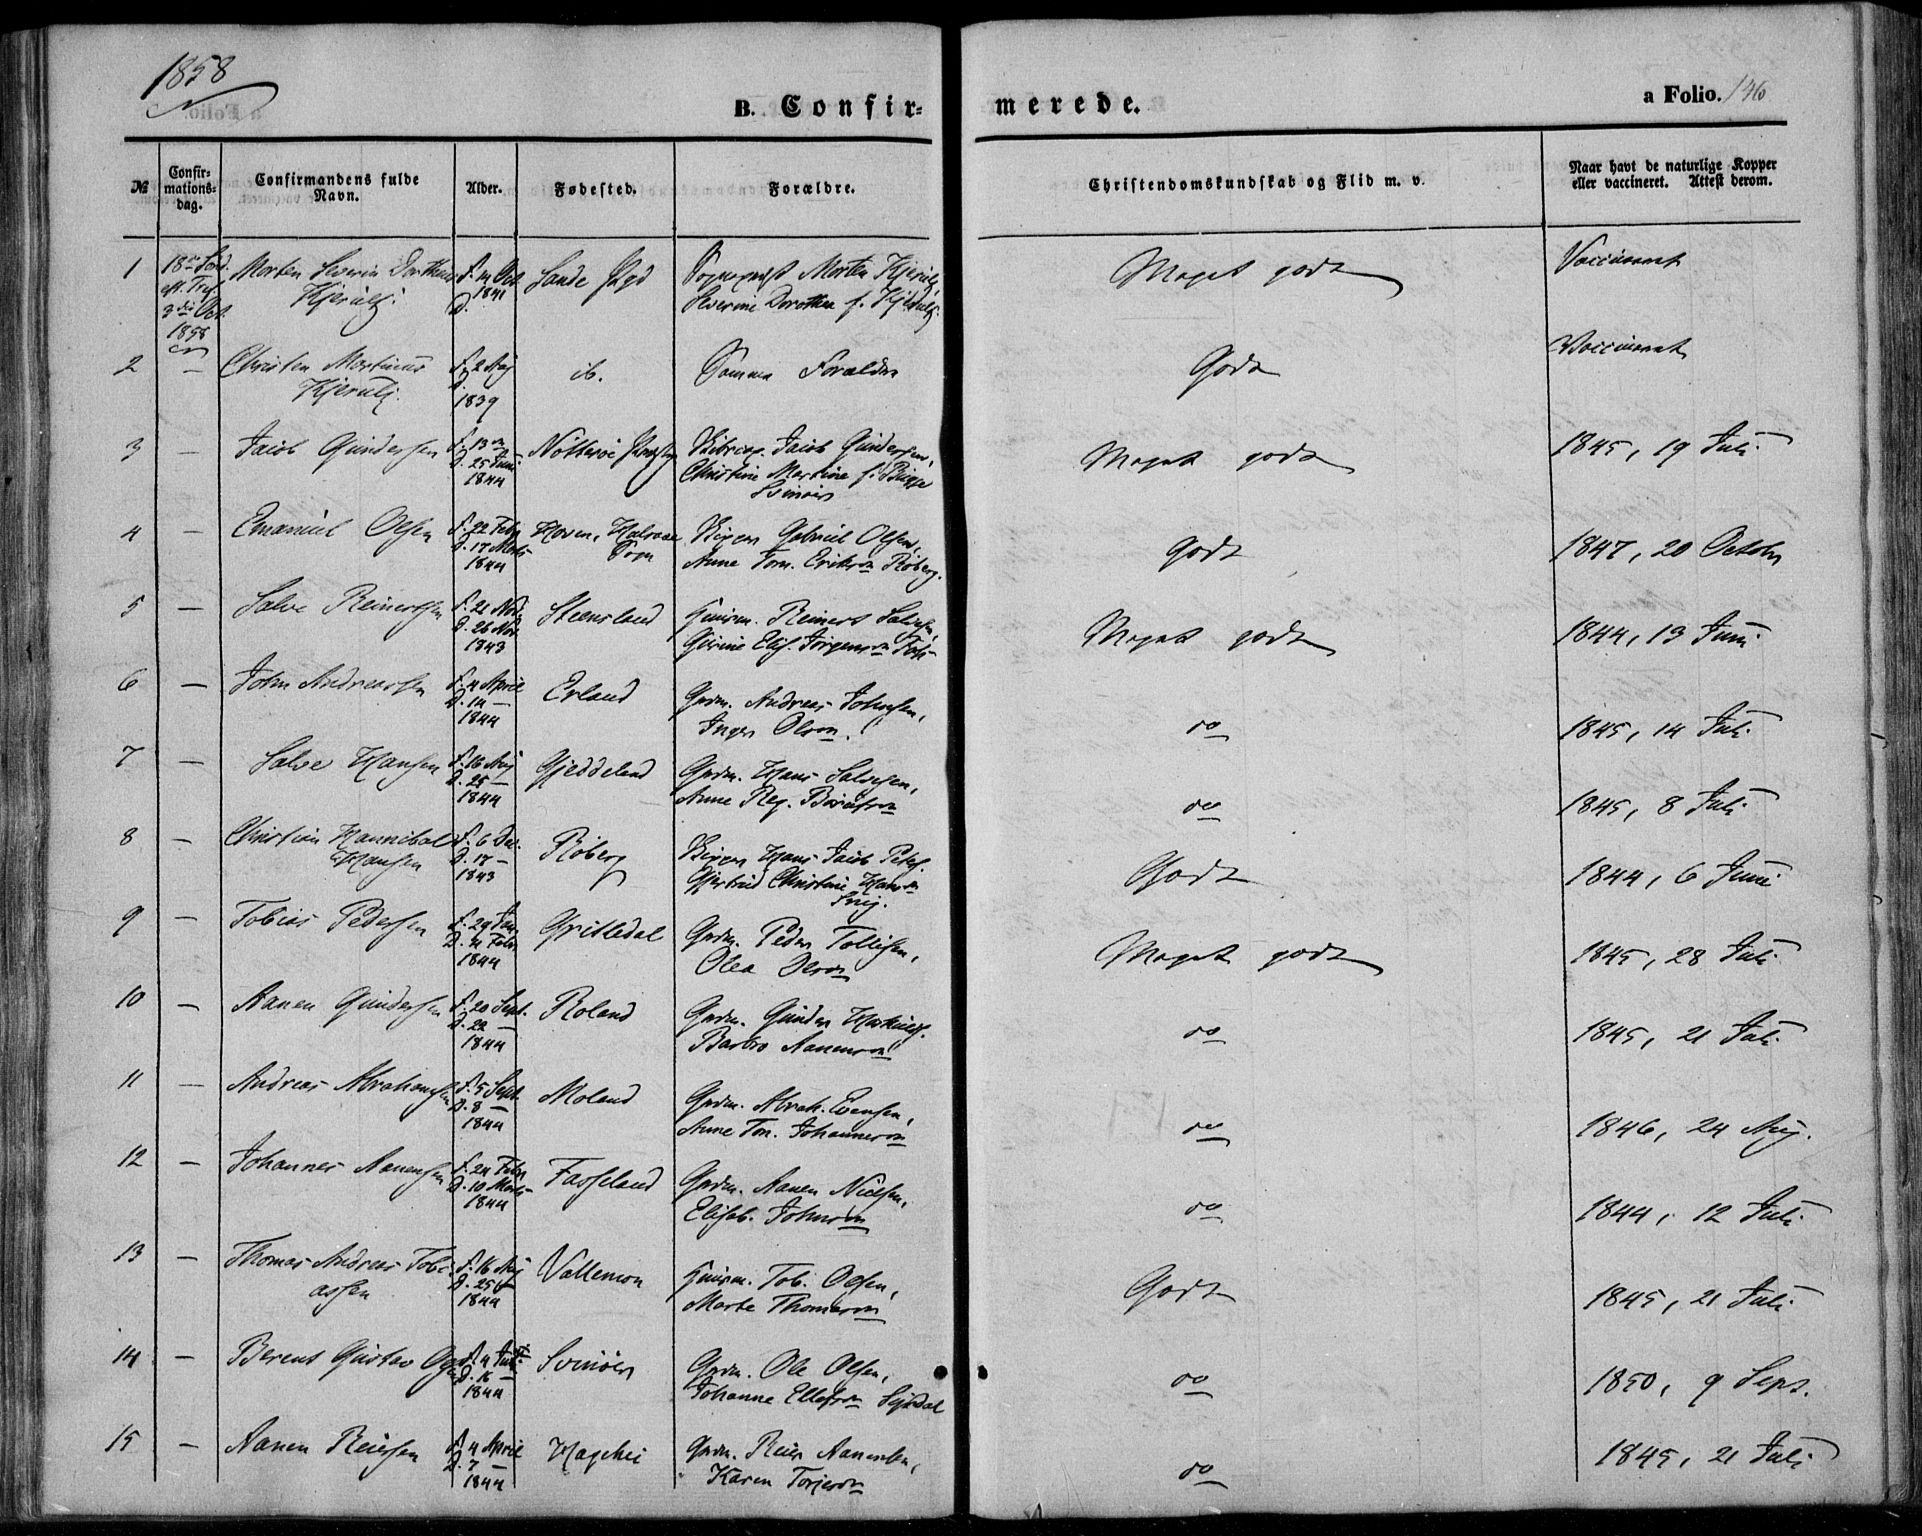 1858
B. Confir=
merede.
a Folio. 146
№
Confir=
mations=
dag.
Confirmandens fulde
Navn.
Alder.
Fødested.
Forældre.
Christendomskundskab og Flid m. v.
Naar havt de naturlige Kopper
eller vaccineret. Attest derom.
1
18de Sönd.
eft. Tref.
3die Oct.
1858
Morten Severin Dorthenus
Kjerulf.
f. 4 Oct
D. 1841
Sande Pgd
Sognepræst Morten Kjerulf,
Severine Dorothea f. Kjerulf.
Meget godt
Vaccineret
2
—
Christen Martinus
Kjerulf.
f. 2 Maj
D.
1839
ib.
Samme Forældre
Godt
Vaccineret
3
—
Jacob Gundersen
D. 25 Juni
1844
Nötteröe
Jacob Gundersen,
Christine Martine f. Bugge
Svinöer
Meget godt
1845, 19 Juli
4
—
Emanuel Olsen
f. 22 Febr
D. 17 Marts
1844
Sogn
Gabriel Olsen,
Anne Tom. Eriksdn Röberg.
Godt
1847, 20 Octobr
5
—
Salve Reinertsen
f. 21 Nov
D. 26 Nov
1843
Steensland
Huusm. Reinert Salvesen,
Gurine Elis. Jörgensdn
Meget godt
1844, 13 Juni
6
—
John Andreassen
f. 4 April
D. 14 —
1844
Erland
Grdm. Andreas Johnsen,
Inger Olsdn.
do
1845, 14 Juli
7
—
Salve Hansen
f. 16 Maj
D. 25 —
1844
Gjeddeland
Grdm. Hans Salvesen,
Anne Reg. Börufsdn
do
1845, 8 Juli
8
—
Christian Hannibal
Hansen
f. 6 Dec.
D. 17 —
1843
Röberg
Hans Jacob Peters.
Gjertrud Christine Hansdn
Godt
1844, 6 Juni
9
—
Tobias Pedersen
f. 29 Jan
D. 4 Febr
1844
Gritledal
Grdm. Peder Tollisen,
Olea Olsdn
Meget godt
1845, 28 Juli
10
—
Aanen Gundersen
f. 20 Sept.
D. 22 —
1844
Roland
Grdm. Gunder
Barbro Aanensdn
do
1845, 21 Juli
11
—
Andreas Abrahamsen
f. 5 Sept.
D. 8 —
1844
Moland
Grdm. Abrah. Evensen,
Anne Ton. Johannesdn
do
1846, 24 Aug.
12
—
Johannes Aanensen
f. 24 Febr
D. 10 Marts
1844
Fasseland
Grdm. Aanen Nielsen,
Elisab. Johnsdn
do
1844, 12 Juli
13
—
Thomas Andreas Tobi-
assen
f. 16 Maj
D. 25 —
1844
Vallemon
Huusm. Tob. Olsen,
Marte Thomasdn
Godt
1845, 21 Juli
14
—
Berent Gustav Olsen
f. 4 Juni
D. 16 —
1844
Svinöer
Grdm. Ole Olsen,
Johanne Ellefsdn
do
1850, 9 Sept.
15
—
Aanen Reiersen
f. 4 April
D. 7 —
1844
Hagehei
Grdm. Reier Aanensen,
Karen Torjesdn
do
1845, 21 Juli